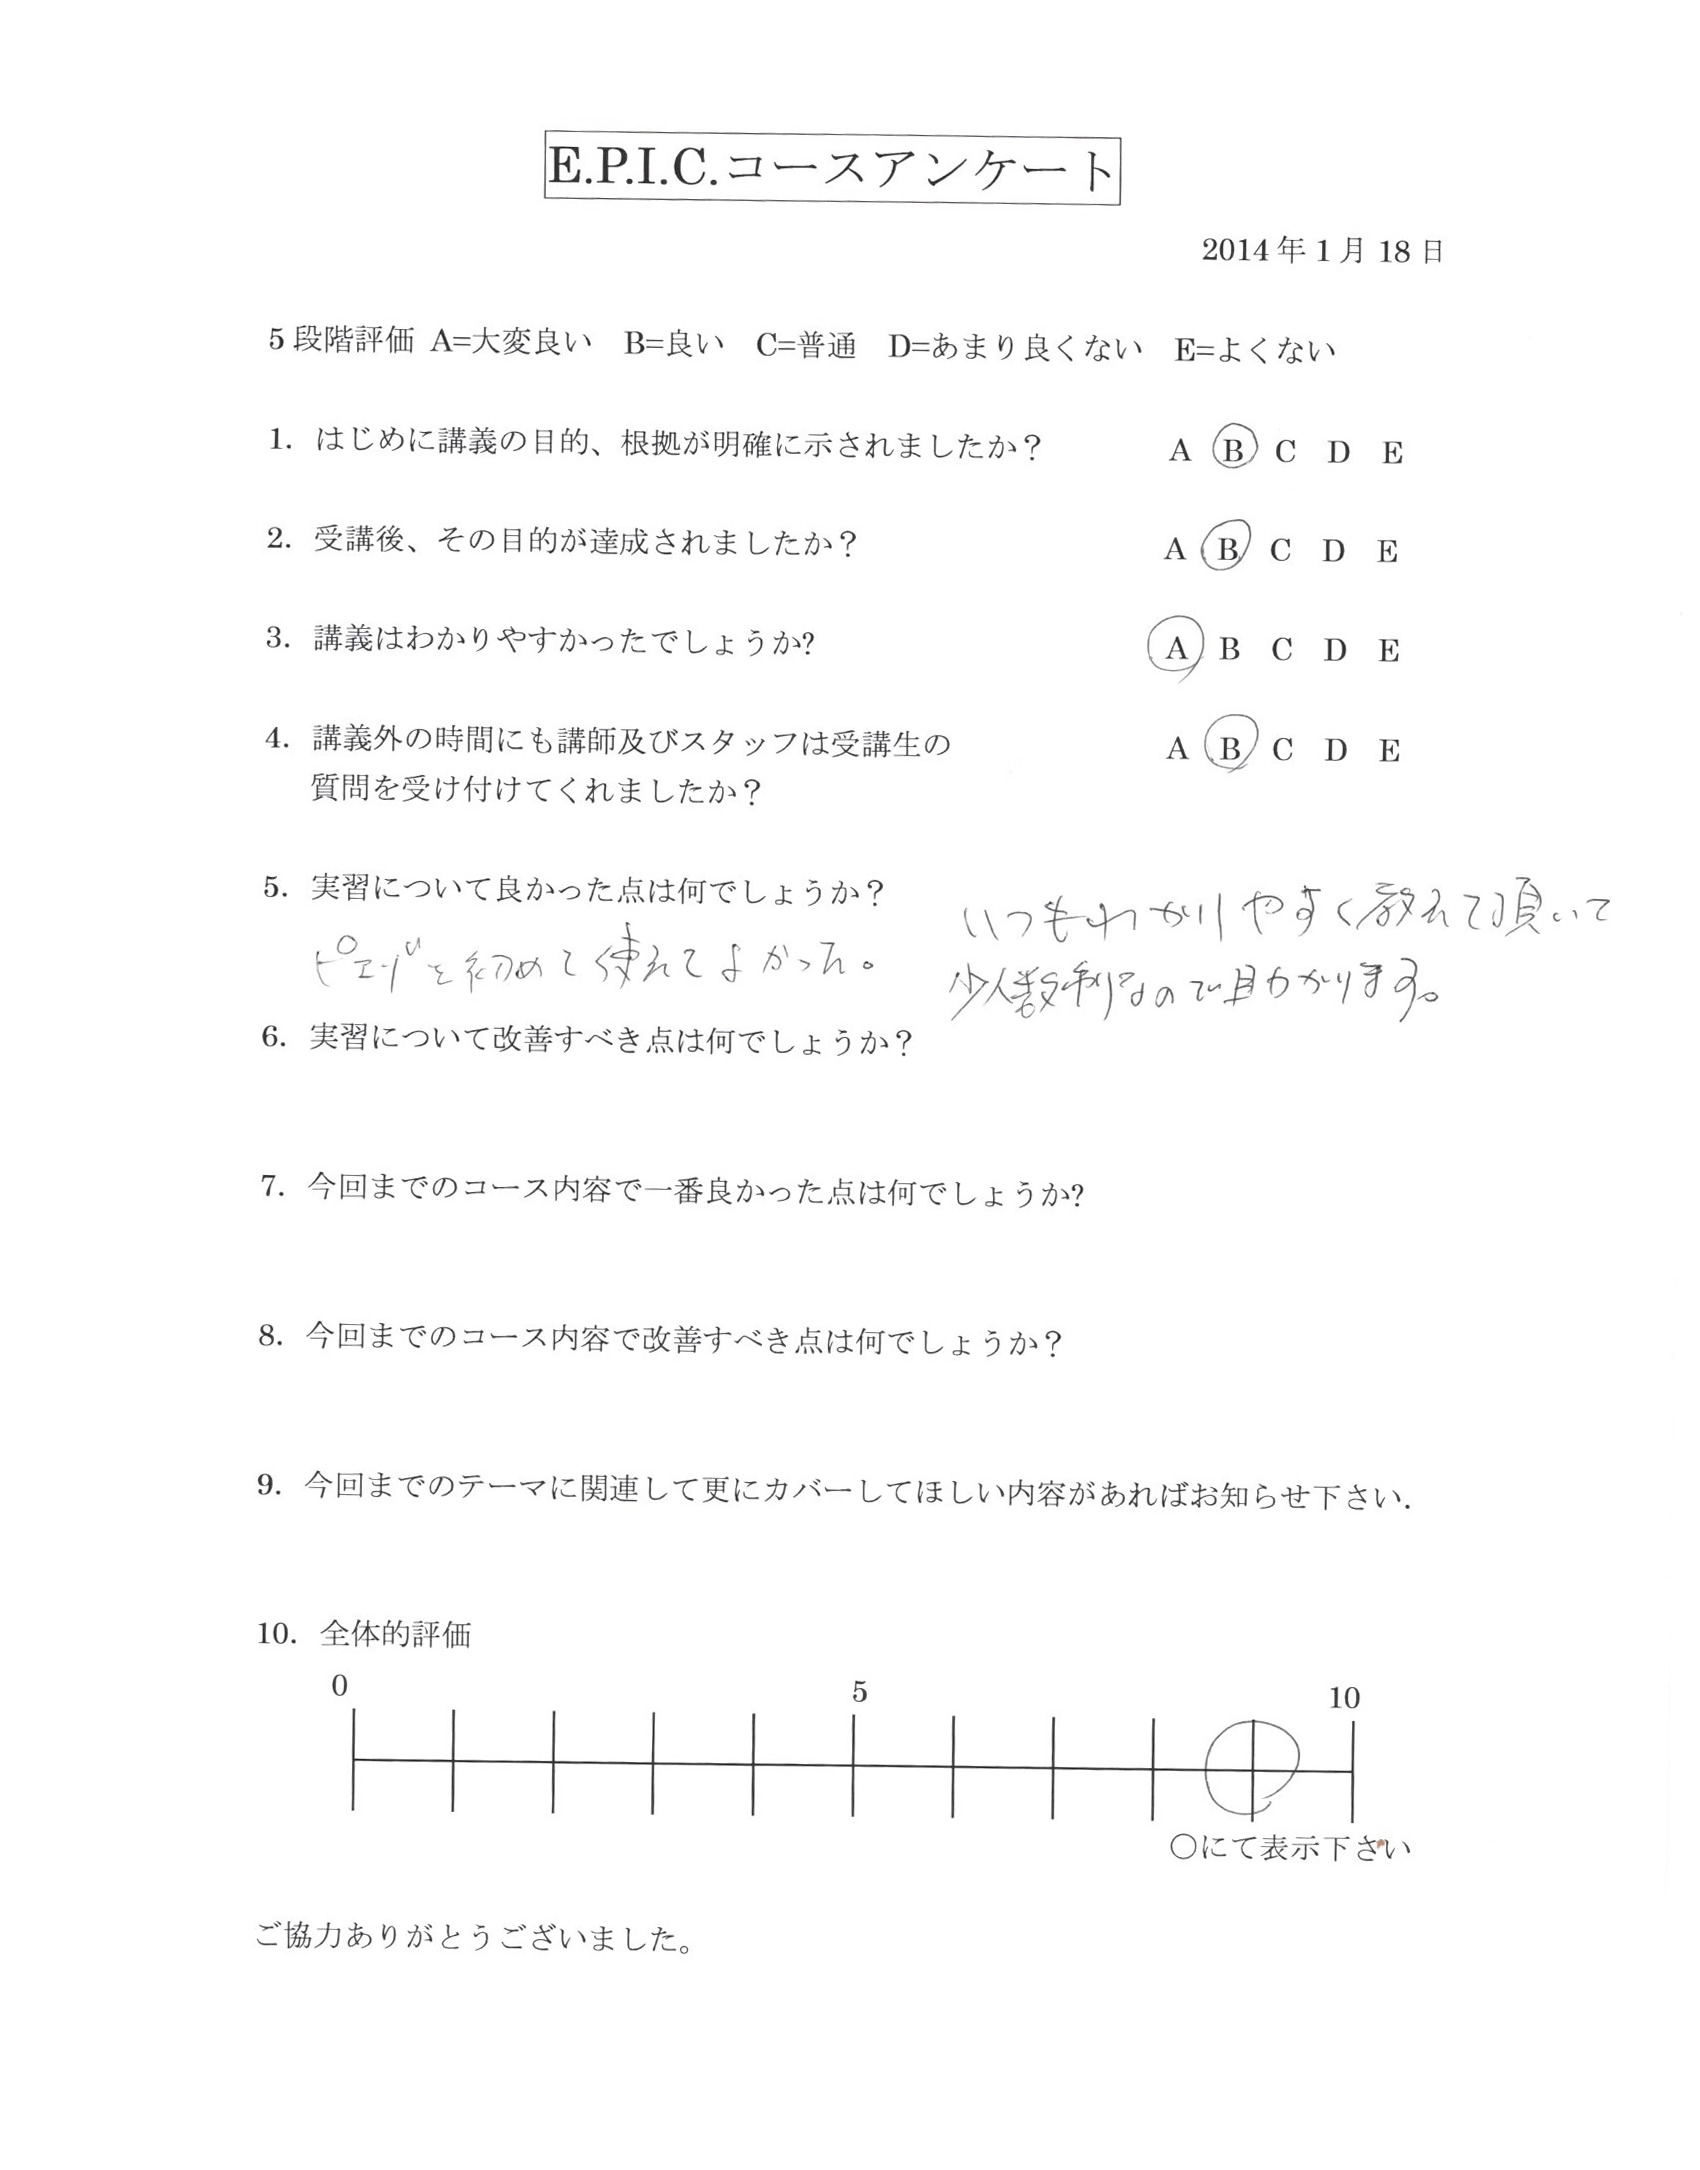 E.P.I.C.コースアンケート
2014年1月18日
5段階評価 A=大変良い B=良い C=普通 D=あまり良くない E=よくない
1. はじめに講義の目的、根拠が明確に示されましたか? A B C D E
2. 受講後、その目的が達成されましたか? A B C D E
3. 講義はわかりやすかったでしょうか? A B C D E
4. 講義外の時間にも講師及びスタッフは受講生の A B C D E
質問を受け付けてくれましたか?
5. 実習について良かった点は何でしょうか?
ピエゾを初めて使えてよかった。
いつもわかりやすく教えて頂いて
少人数制なので助かります。
6. 実習について改善すべき点は何でしょうか?
7. 今回までのコース内容で一番良かった点は何でしょうか?
8. 今回までのコース内容で改善すべき点は何でしょうか?
9. 今回までのテーマに関連して更にカバーしてほしい内容があればお知らせ下さい.
10. 全体的評価
0 5 10
○にて表示下さい
ご協力ありがとうございました。